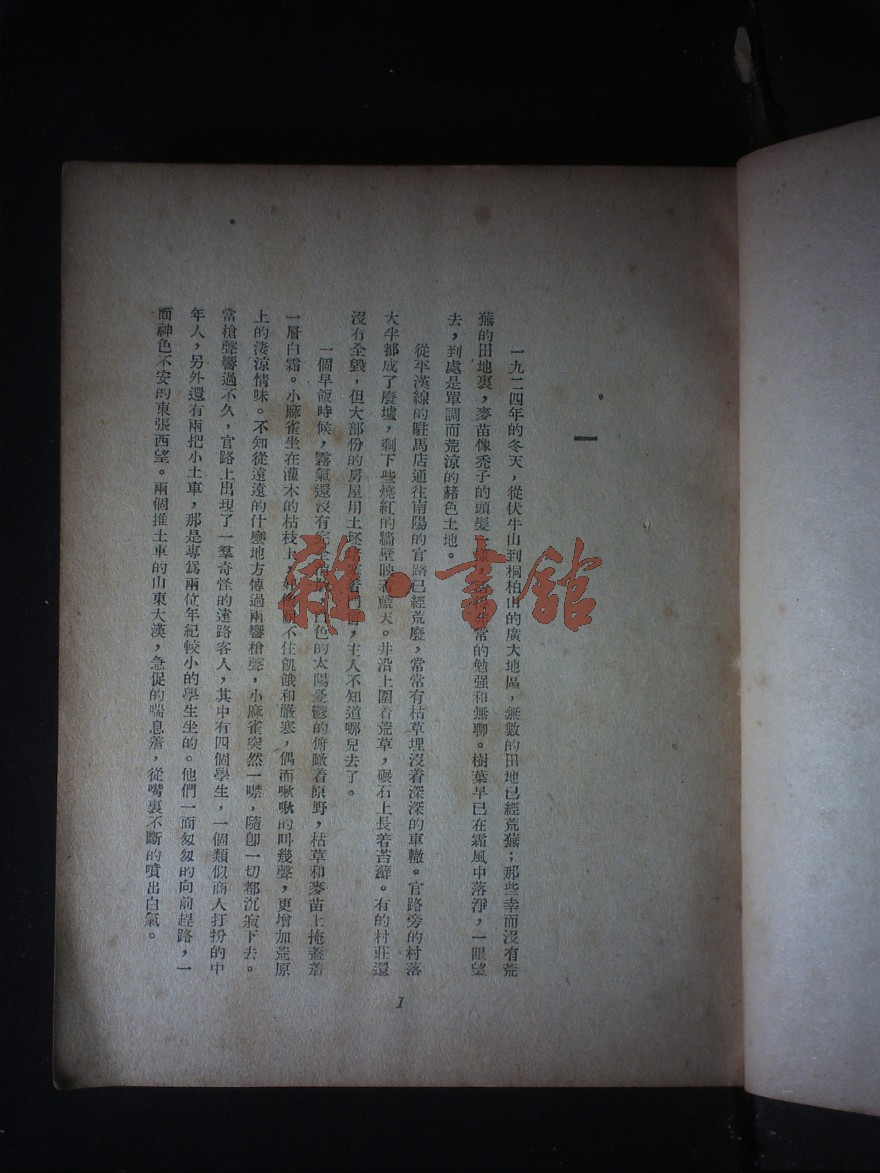 一
一九二四年的冬天，從伏牛山到桐柏山的廣大地區，無數的田地已經荒蕪；那些幸而沒有荒
蕪的田地裏，麥苗像禿子的頭髮一樣，常的勉强和無聊。樹葉早已在霜風中落淨，一眼望
去，到處是單調而荒涼的赭色土地。
從平漢線的駐馬店通往南陽的官路已經荒廢，常常有枯草埋沒着深深的車轍。官路旁的村落
大半都成了廢墟，剩下些燒紅的牆壁映着藍天。井沿上圍着荒草，碾石上長着苔蘚。有的村莊還
沒有全毀，但大部份的房屋用土坯堵塞着門窗，主人不知道哪兒去了。
一個早飯時候，霧氣還沒有完全白色的太陽憂鬱的俯瞰着原野，枯草和麥苗上掩蓋着
一層白霜。小麻雀坐在灌木的枯枝上，不住飢餓和嚴寒，偶而啾啾的叫幾聲，更增加荒原
上的淒涼情味。不知從遠遠的什麼地方傳過兩響槍聲，小麻雀突然一噤，隨卽一切都沉寂下去。
當槍聲響過不久，官路上出現了一羣奇怪的遠路客人，其中有四個學生，一個類似商人打扮的中
年人，另外還有兩把小土車，那是專爲兩位年紀較小的學生坐的。他們一面匆匆的向前趕路，一
面神色不安的東張西望。兩個推土車的山東大漢，急促的喘息着，從嘴裏不斷的噴出白氣。
1
雜·書館